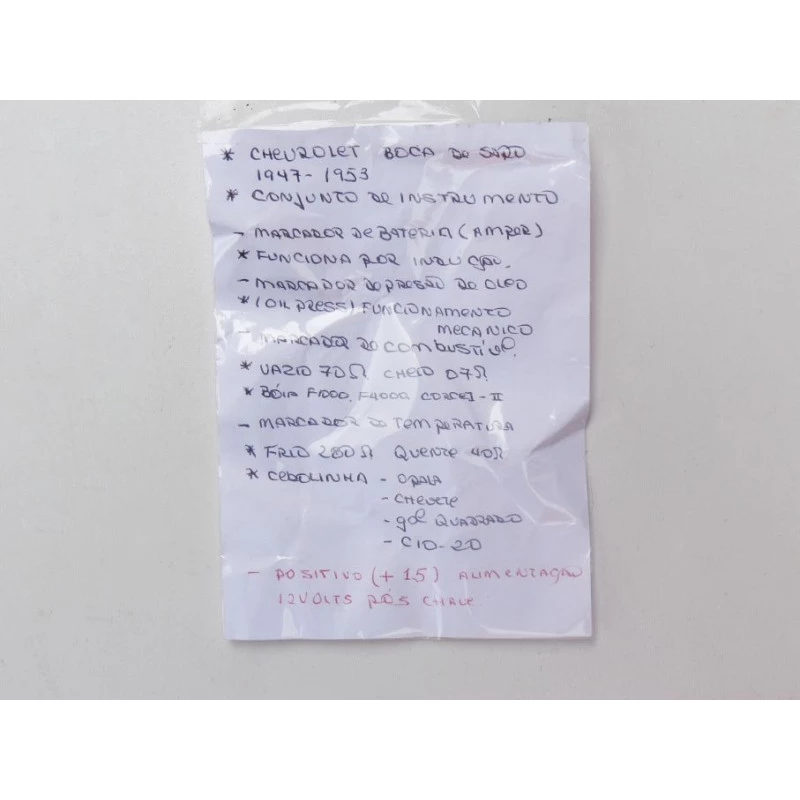 * CHEVROLET BOCA DO SAPO
1947-1953
* CONJUNTO DE INSTRUMENTO
- MARCADOR DE BATERIA (AMPER)
* FUNCIONA POR INDUÇÃO.
- MARCADOR DO PRESÃO DO OLEO
* (OIL PRESS) FUNCIONAMENTO
MECANICO
- MARCADOR DO COMBUSTÍVEL.
* VAZIO 70Ω CHEIO 07Ω
* BÓIA F1000, F4000, CORCEL-II
- MARCADOR DO TEMPERATURA
* FRIO 280Ω QUENTE 40Ω
* CEBOLINHA - OPALA
- CHEVETE
- gol QUADRADO
- C10-20
- POSITIVO (+15) ALIMENTAÇÃO
12VOLTS PÓS CHAVE